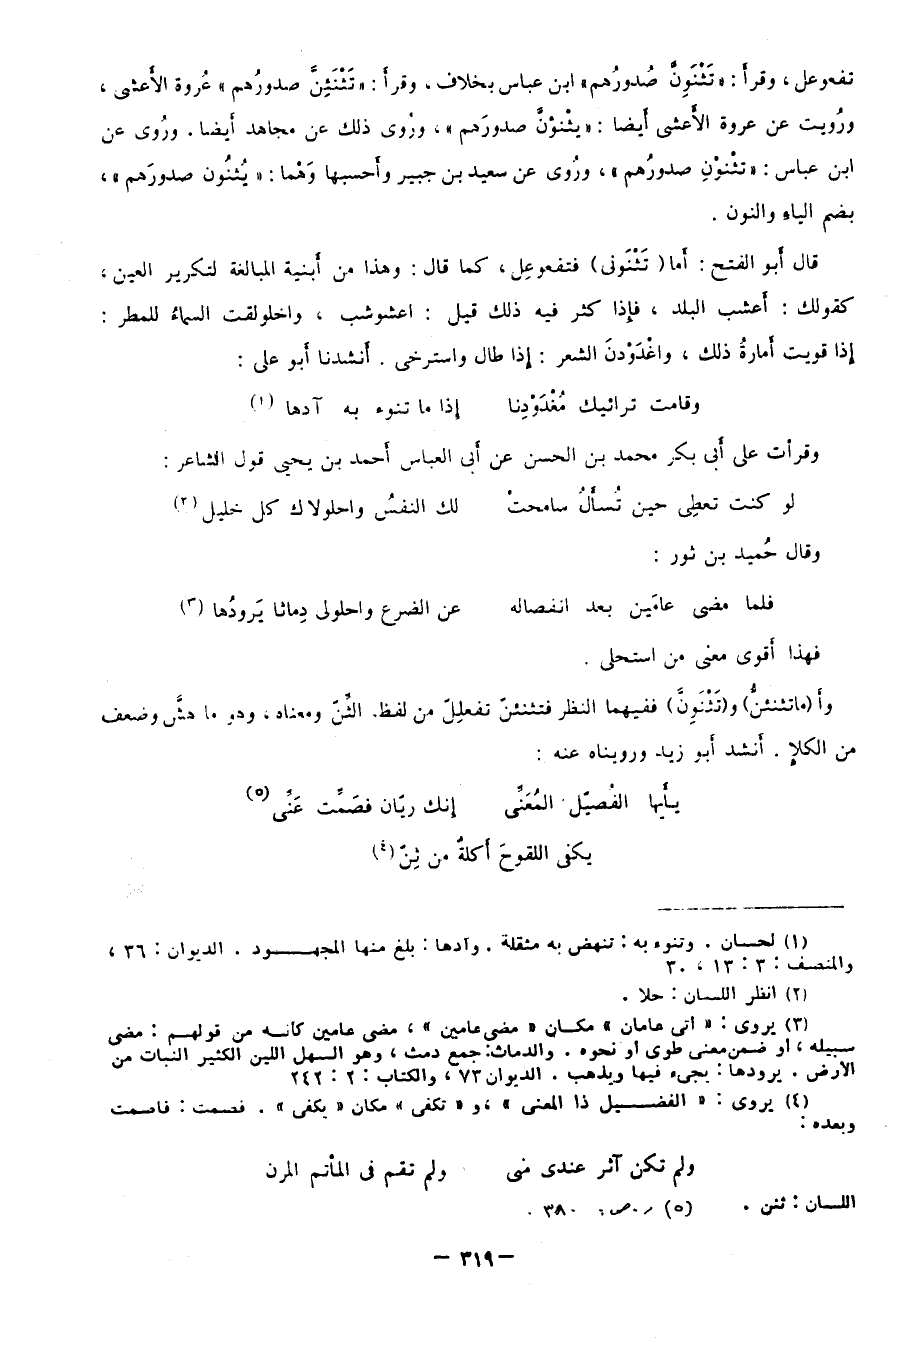 تفعوعل ، وقرأ : «تَثْنَوِنَّ صُدورُهم» ابن عباس بخلاف ، وقرأ : «تَثْنَئِنَّ صدورُهم» عُروة الأَعشى ،
ورُويت عن عروة الأَعشى أَيضا : «يثنوْنَّ صدورَهم» ، ورُوى ذلك عن مجاهد أَيضا . ورُوى عن
ابن عباس : «تثْنوْنِ صدورُهم» ، ورُوى عن سعيد بن جبير وأَحسبها وَهْما : «يُثنُون صدورَهم» ،
بضم الياءِ والنون .
قال أَبو الفتح : أَما (تَثْنَونى) فتفعوعِل ، كما قال : وهذا من أَبنية المبالغة لتكرير العين ،
كقولك : أَعشب البلد ، فإذا كثر فيه ذلك قيل : اعشوشب ، واخلولقت السماءُ للمطر :
إذا قويت أَمارةُ ذلك ، واغْدَوْدنَ الشعر : إذا طال واسترخى . أَنشدنا أَبو على :
وقامت ترائيك مُغْدَوْدِنا إذا ما تنوء به آدها (١)
وقرأت على أَبى بكر محمد بن الحسن عن أَبى العباس أَحمد بن يحيى قول الشاعر :
لو كنت تعطِى حين تُسأَلُ سامحتْ لك النفسُ واحلولاك كل خليل (٢)
وقال حُميد بن ثور :
فلما مضى عامَين بعد انفصاله عن الضرع واحلولى دِماثا يَرودُها (٣)
فهذا أَقوى معنى من استحلى .
وأَ(ماتثنئنُّ) و(تَثْنَوِنَّ) ففيهما النظر فتثنئنّ تفعلِلّ من لفظ الثِّنّ ومعناه ، وهو ما هشَّ وضعف
من الكلإِ . أَنشد أَبو زيد ورويناه عنه :
يأَيها الفُصَيّل المُعَنِّى إنك ريّان فصَمِّت عَنِّى (٥)
يكفى اللقوحَ أَكلةٌ من ثِنّ (٤)
(١) لحسان . وتنوء به : تنهض به مثقلة . وآدها : بلغ منها المجهود . الديوان : ٣٦ ،
والمنصف : ٣ : ١٣ ، ٣٠
(٢) انظر اللسان : حلا .
(٣) يروى : «أتى عامان» مكان «مضى عامين» ، مضى عامين كأنه من قولهم : مضى
سبيله ، أو ضمن معنى طوى أو نحوه . والدماث: جمع دمث ، وهو السهل اللين الكثير النبات من
الأرض . يرودها : يجىء فيها ويذهب . الديوان ٧٣ ، والكتاب : ٢ : ٢٤٢
(٤) يروى : «الفصيل ذا المعنى» ، و «تكفى» مكان «يكفى» . فصمت : فاصمت
وبعده :
ولم تكن آثر عندى منى ولم تقم فى المأتم المرن
اللسان : ثنن . (٥) ٣٨٠ .
— ٣١٩ —